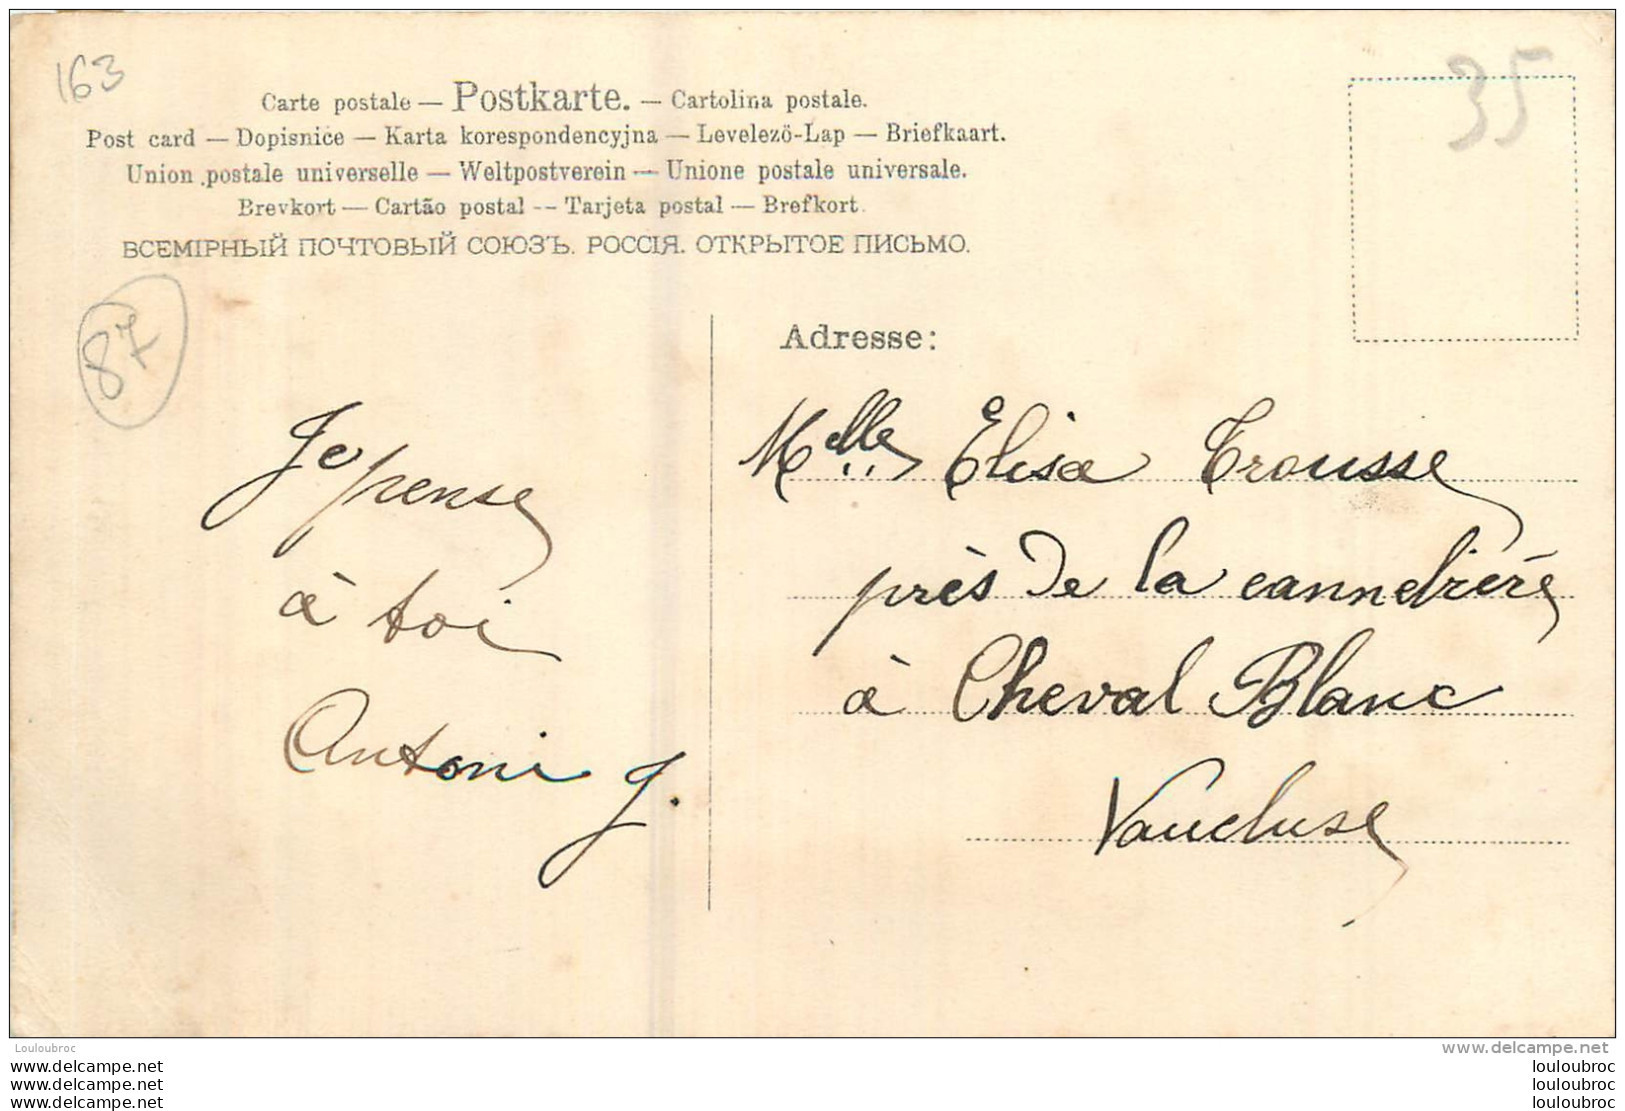 163
35
Carte postale — Postkarte. — Cartolina postale.
Post card — Dopisnice — Karta korespondencyjna — Levelezö-Lap — Briefkaart.
Union postale universelle — Weltpostverein — Unione postale universale.
Brevkort — Cartão postal -- Tarjeta postal — Brefkort.
ВСЕМІРНЫЙ ПОЧТОВЫЙ СОЮЗЪ. РОССІЯ. ОТКРЫТОЕ ПИСЬМО.
87
Adresse:
Je pense
à toi
Antoni J.
Melle Elisa Trousse
près de la
à Cheval Blanc
Vaucluse
Louloubroc
www.delcampe.net
www.delcampe.net
www.delcampe.net
www.delcampe.net
louloubroc
louloubroc
louloubroc